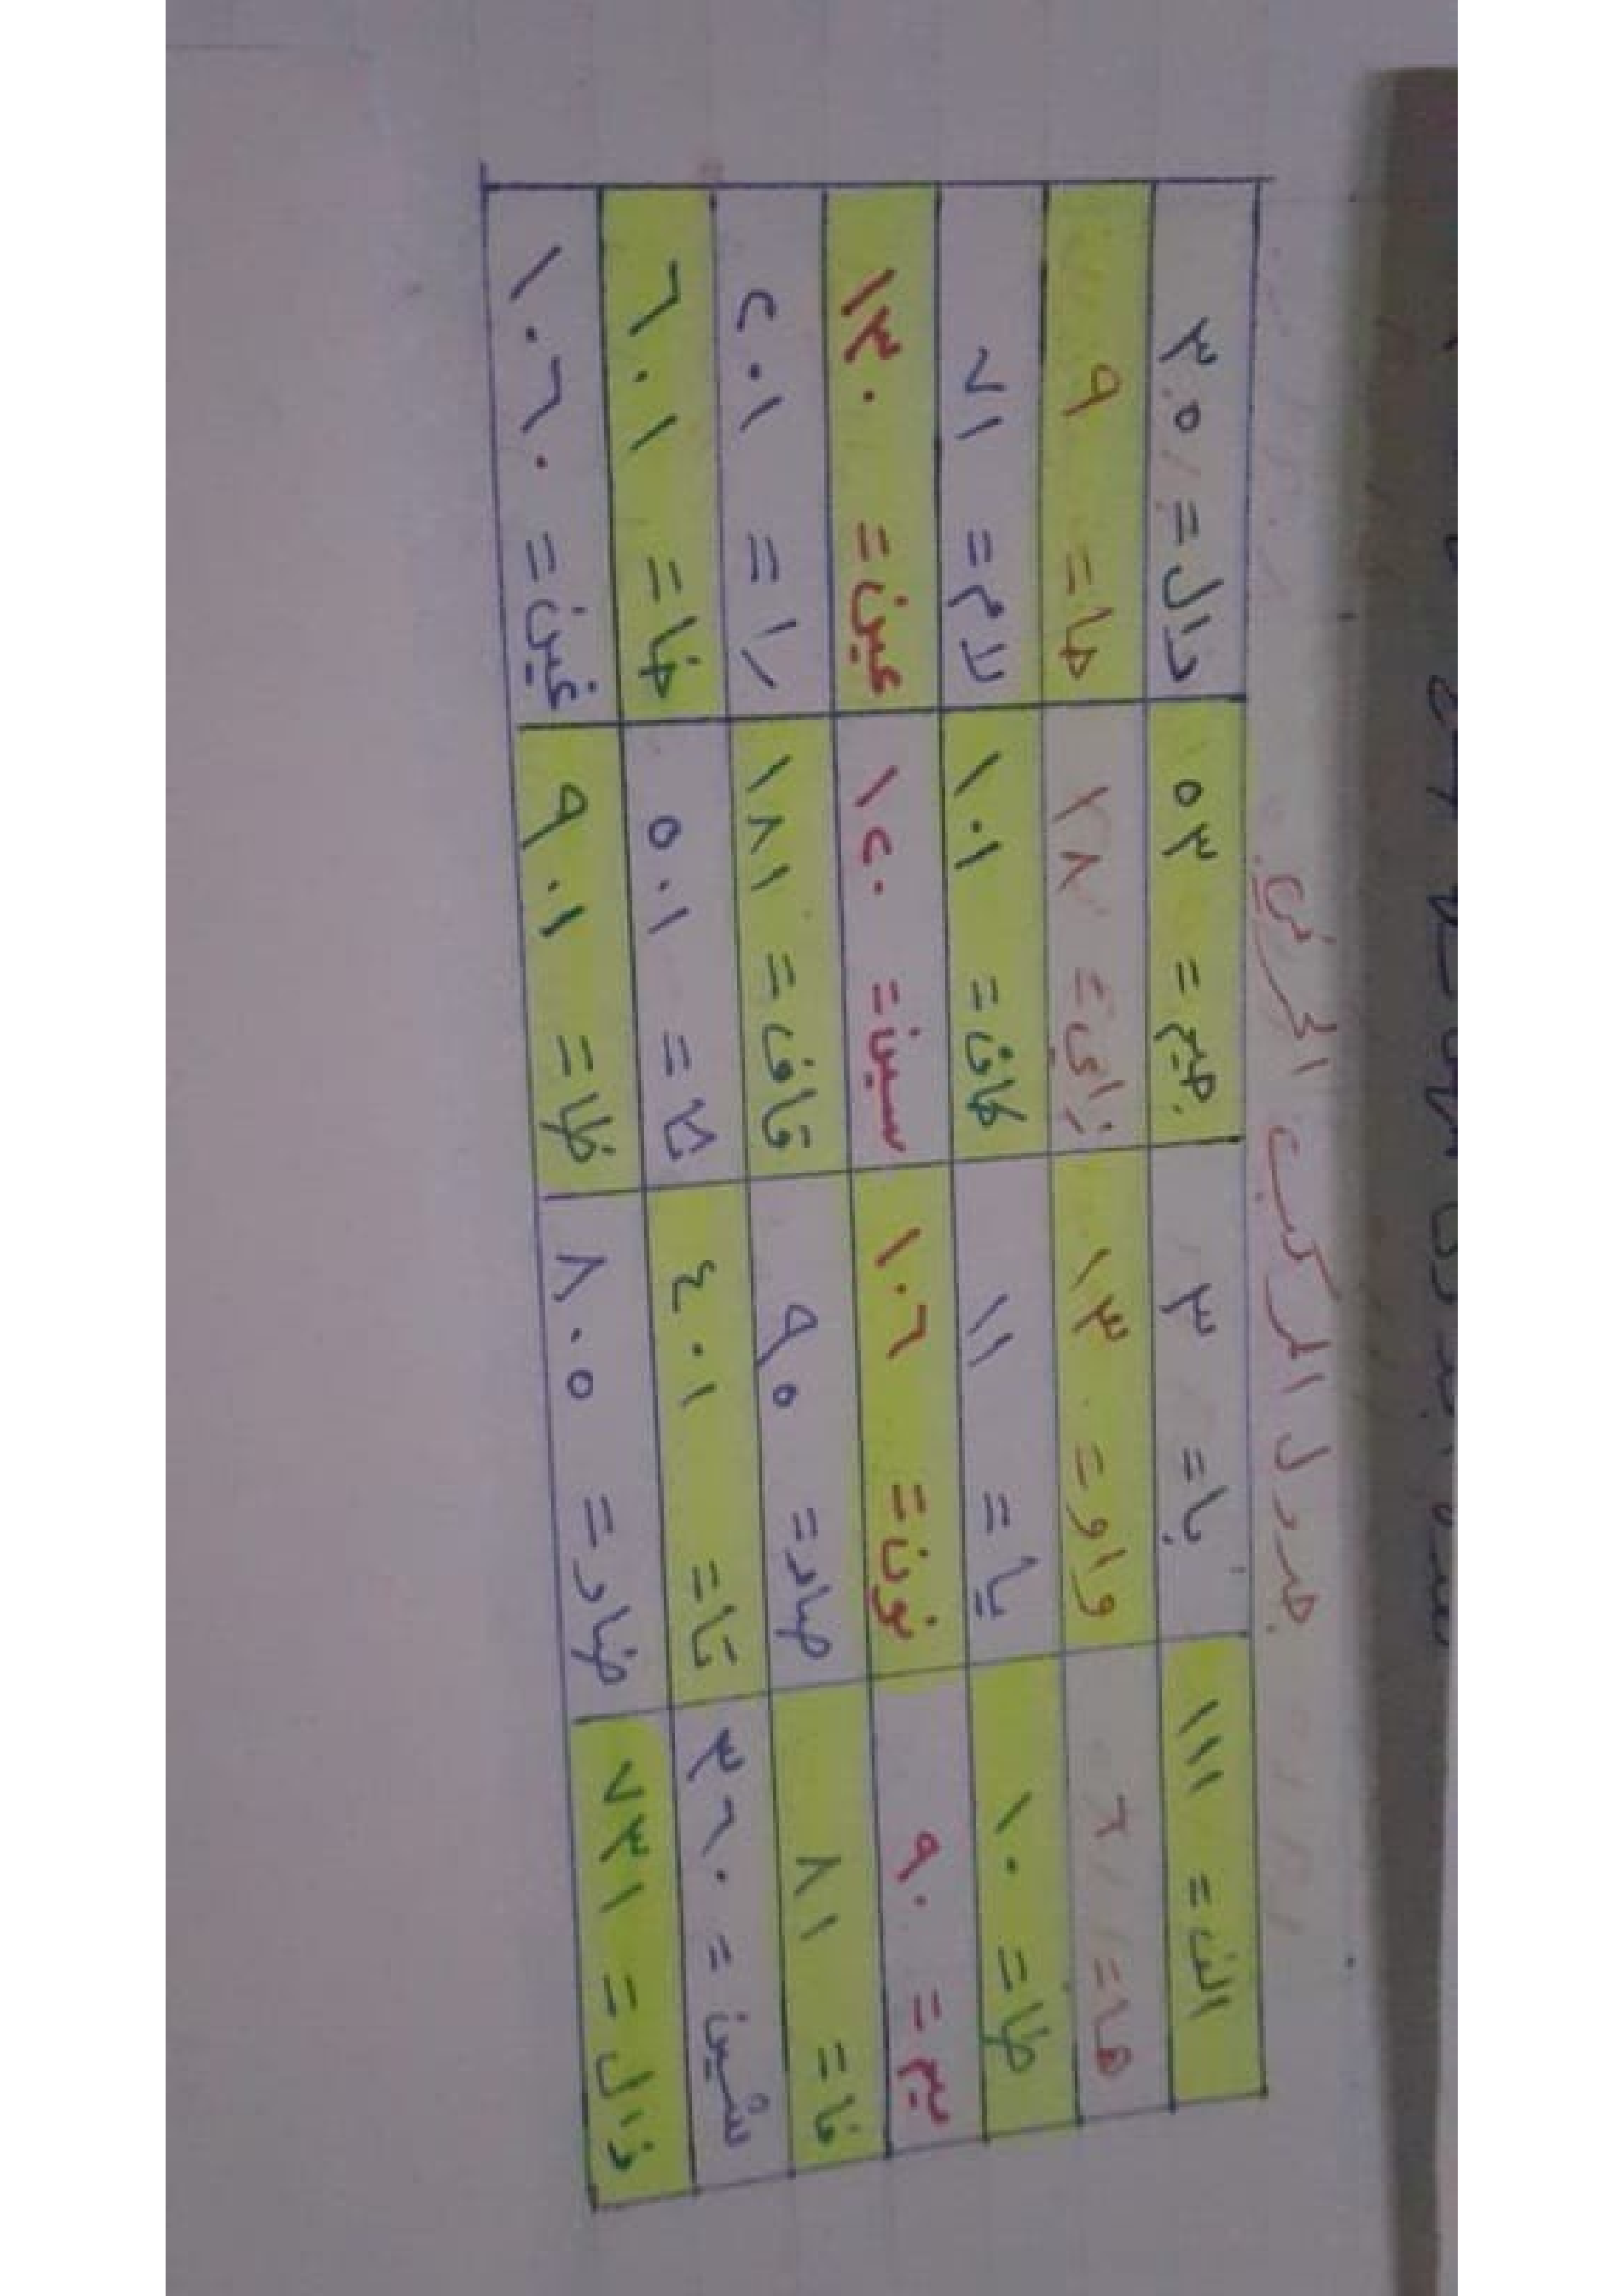 جدول المركب الحرفي
الف = ١١١ با = ٣ جيم = ٥٣ دال = ٣٥
ها = ٦ واو = ١٣ زاي = ١٨ حا = ٩
طا = ١٠ يا = ١١ كاف = ١٠١ لام = ٧١
ميم = ٩٠ نون = ١٠٦ سين = ١٢٠ عين = ١٣٠
فا = ٨١ صاد = ٩٥ قاف = ١٨١ را = ٢٠١
شين = ٣٦٠ تا = ٤٠١ ثا = ٥٠١ خا = ٦٠١
ذال = ٧٣١ ضاد = ٨٠٥ ظا = ٩٠١ غين = ١٠٦٠